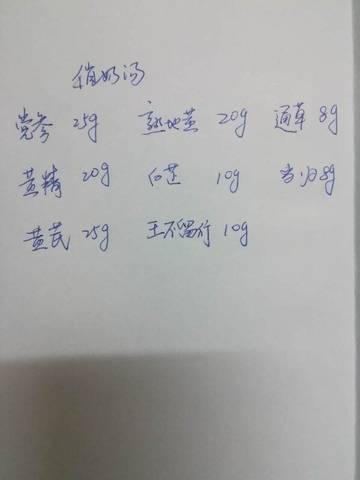 奶汤
党参 25g 熟地黄 20g 通草 8g
黄精 20g 白芷 10g 当归 8g
黄芪 25g 王不留行 10g